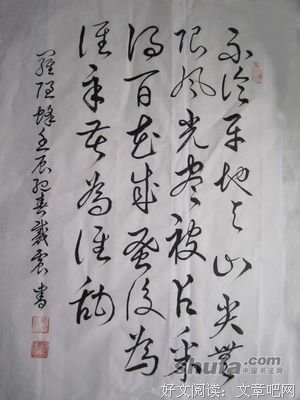 不论平地与山尖無
限风光尽被占采
得百花成蜜後為
谁辛苦為谁甜
羅隐蜂壬辰春戴震书
shufa.com
中国书法网
好文阅读:文章吧网